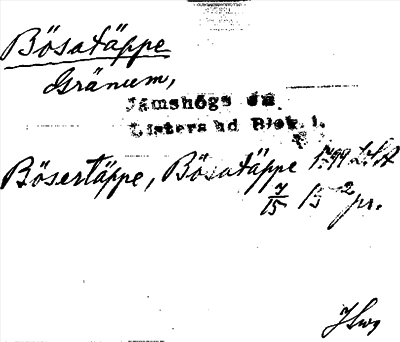 Bösatäppe
Gränum,
Jämshögs sn
Listers hd Blek. l.
Bösertäppe, Bösatäppe 1799
7/15 pr.